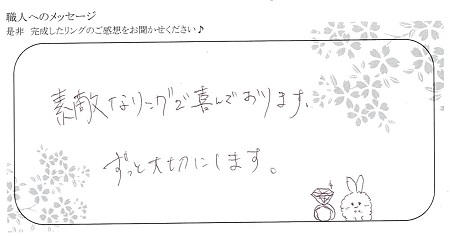 職人へのメッセージ
是非 完成したリングのご感想をお聞かせください♪
素敵なリングで喜んでおります。
ずっと大切にします。